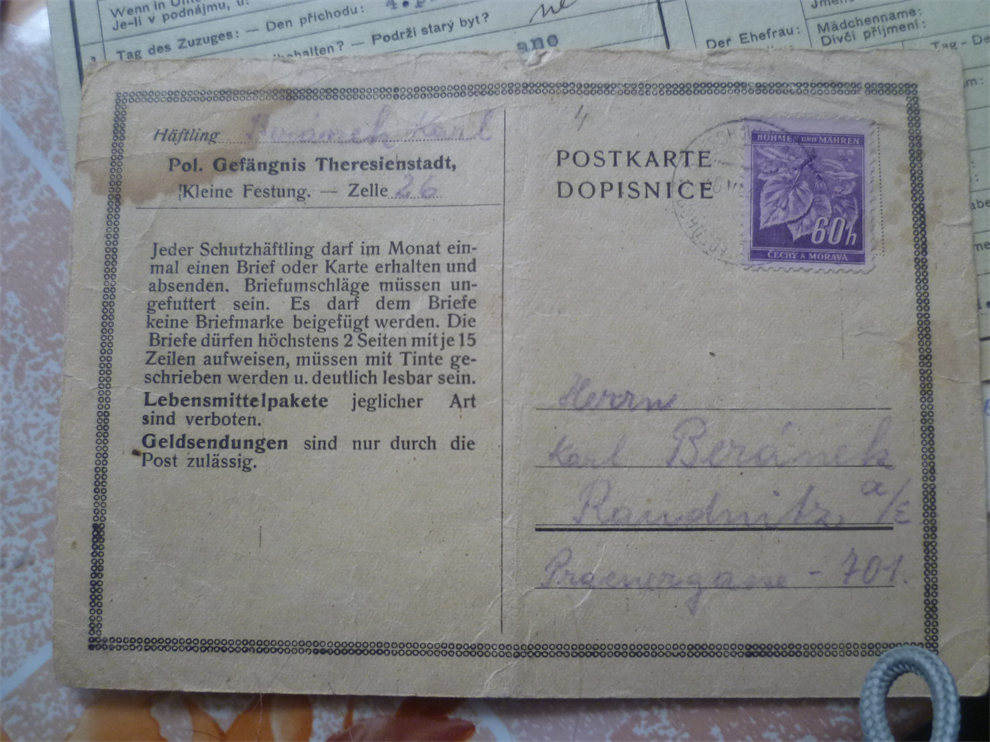 Wenn in
Je-li v podnájmu, u
Tag des Zuzuges: — Den příchodu:
behalten? — Podrží starý byt?
ne
ano
Der Ehefrau:
Mädchenname:
Divčí příjmení:
Häftling Beránek Karl
Pol. Gefängnis Theresienstadt,
Kleine Festung. — Zelle 26
Jeder Schutzhäftling darf im Monat ein-
mal einen Brief oder Karte erhalten und
absenden. Briefumschläge müssen un-
gefuttert sein. Es darf dem Briefe
keine Briefmarke beigefügt werden. Die
Briefe dürfen höchstens 2 Seiten mit je 15
Zeilen aufweisen, müssen mit Tinte ge-
schrieben werden u. deutlich lesbar sein.
Lebensmittelpakete jeglicher Art
sind verboten.
Geldsendungen sind nur durch die
Post zulässig.
4
POSTKARTE
DOPISNICE
BÖHMEN UND MÄHREN
60h
ČECHY A MORAVA
Herrn
Karl Beránek
Raudnitz a/E
Pracnergasse - 701.